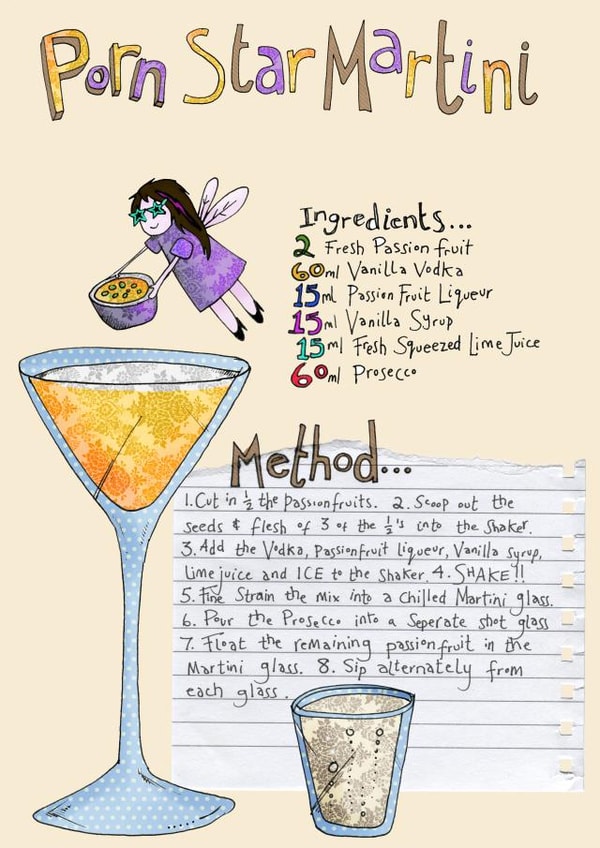 Porn Star Martini
Ingredients...
2 Fresh Passion fruit
60ml Vanilla Vodka
15ml Passion Fruit Liqueur
15ml Vanilla Syrup
15ml Fresh Squeezed Lime Juice
60ml Prosecco
Method...
1. Cut in ½ the passionfruits. 2. Scoop out the
seeds & flesh of 3 of the ½'s into the shaker.
3. Add the Vodka, passionfruit liqueur, Vanilla syrup,
Lime juice and ICE to the shaker. 4. SHAKE!!
5. Fine Strain the mix into a chilled Martini glass.
6. Pour the Prosecco into a Seperate shot glass
7. Float the remaining passionfruit in the
Martini glass. 8. Sip alternately from
each glass.